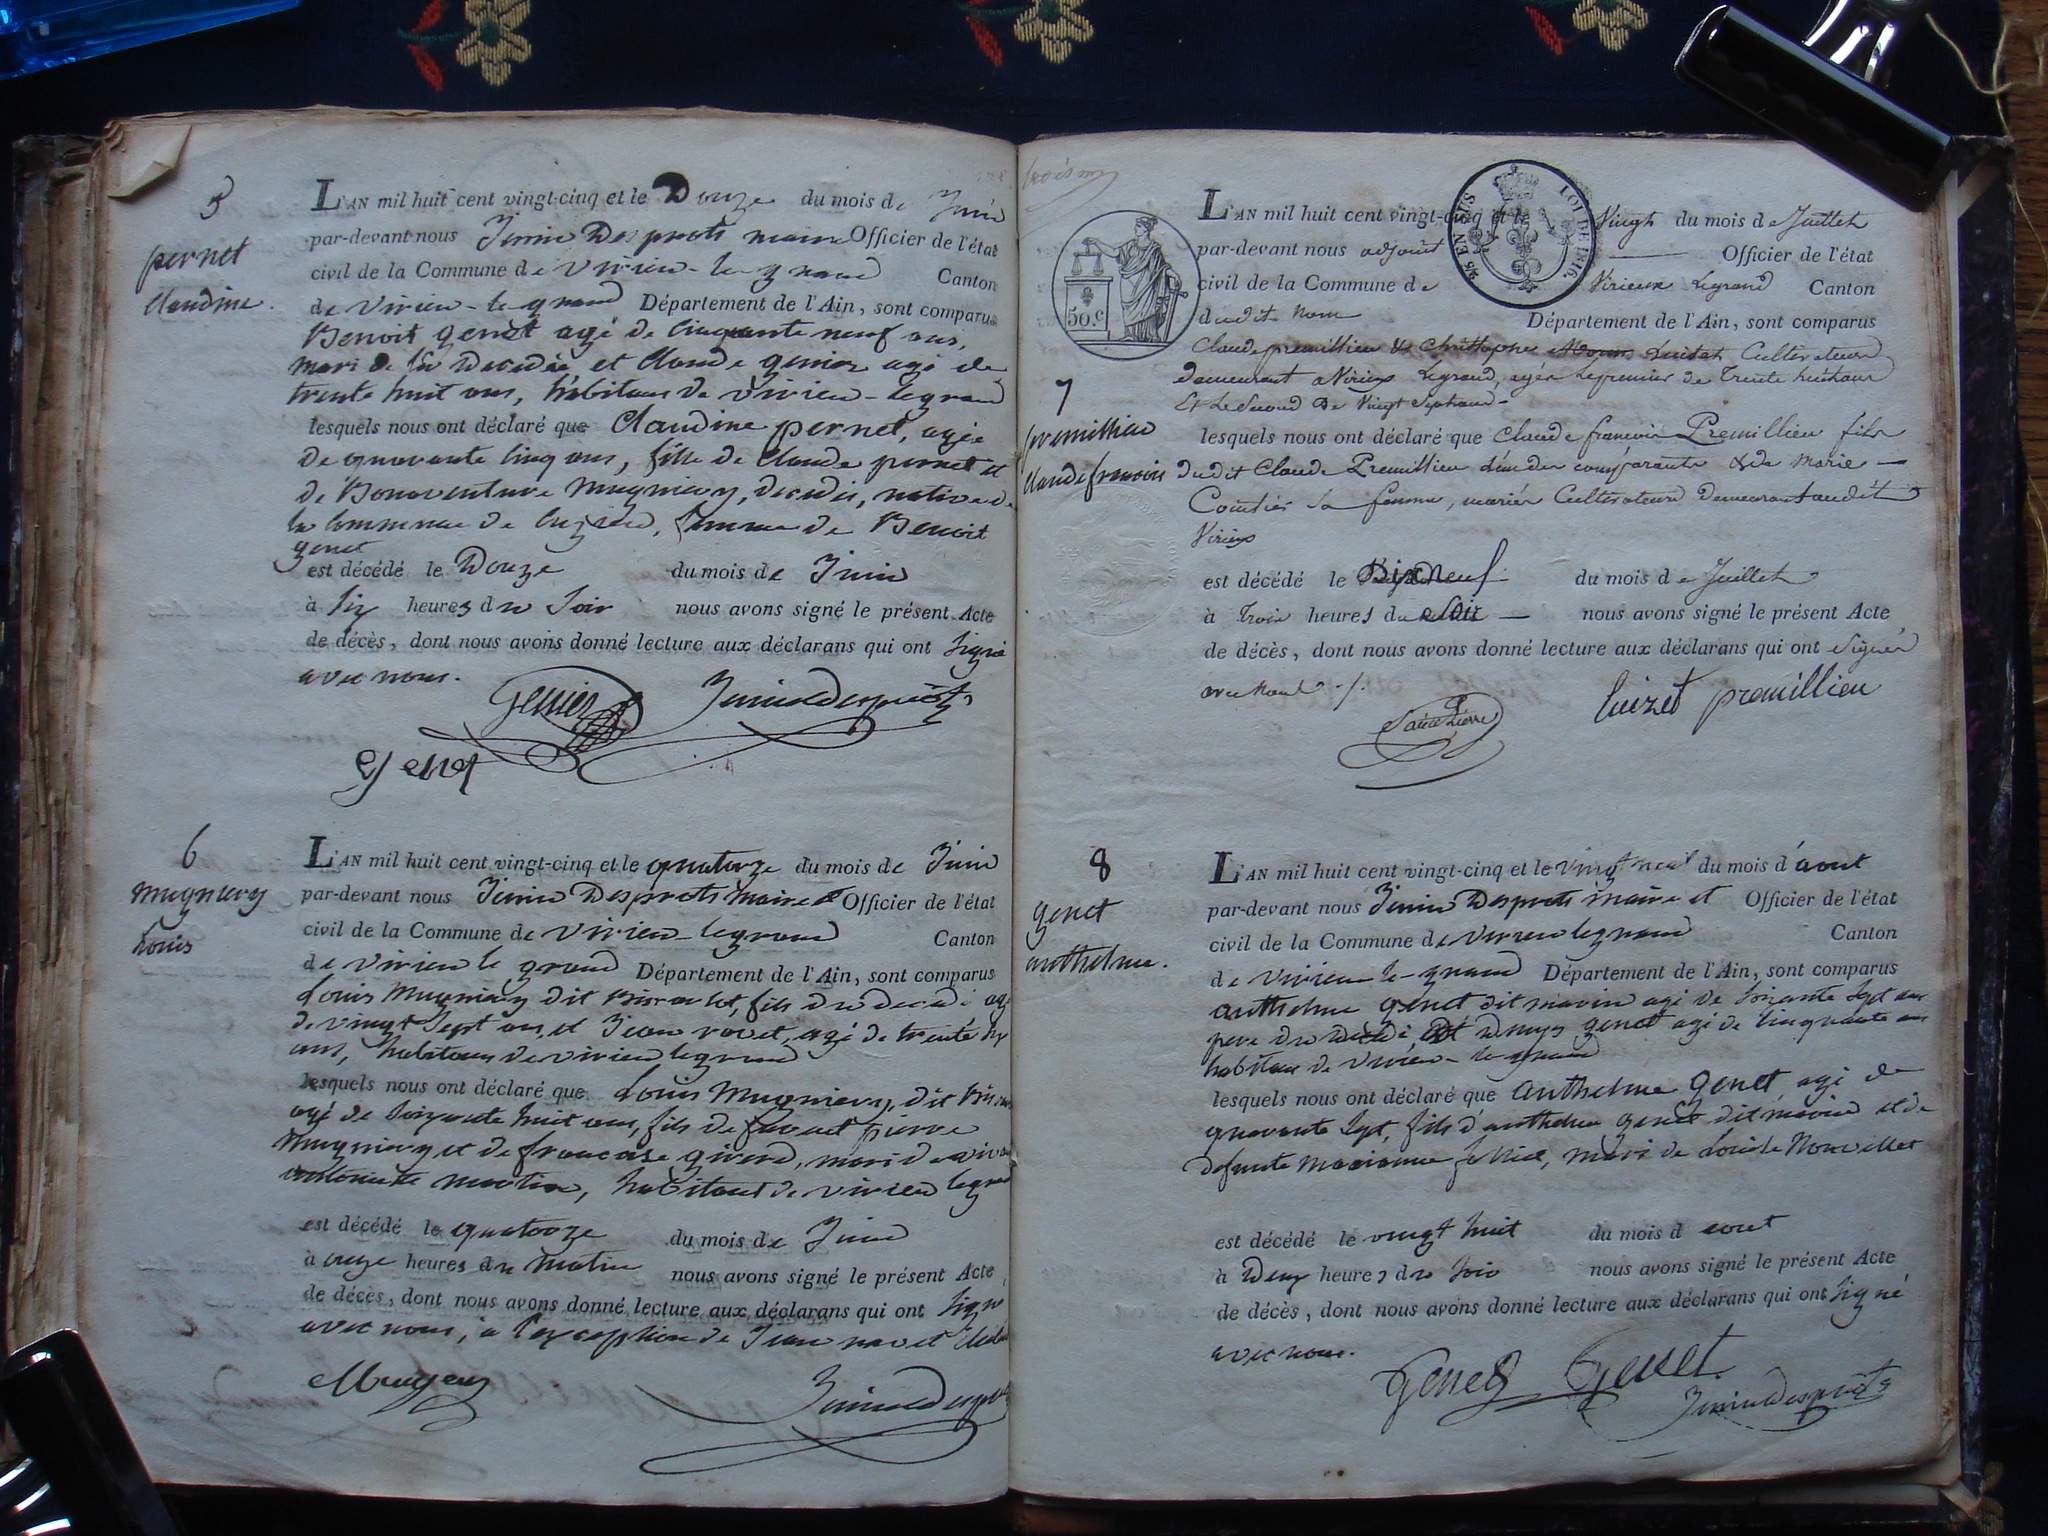 5
pernet
claudine.
L'AN mil huit cent vingt-cinq et le Douze du mois de Juin
par-devant nous Desprots maire Officier de l'état
civil de la Commune de virieu-le grand Canton
de virieu-le grand Département de l'Ain, sont comparus
Benoit genet agé de cinquante neuf ans,
mari de la Décédée, et Claude genier agé de
trente huit ans, habitans de virieu-le grand
lesquels nous ont déclaré que Claudine pernet, agée
de quarante cinq ans, fille de Claude pernet et
de Bonaventure mugniery, décédés, native de
la commune de femme de Benoit
genet
est décédé le Douze du mois de Juin
à six heures du soir nous avons signé le présent Acte
de décès, dont nous avons donné lecture aux déclarans qui ont signé
avec nous.
Genier
Genet
6
mugniery
Louis
L'AN mil huit cent vingt-cinq et le quatorze du mois de Juin
par-devant nous Desprots maire Officier de l'état
civil de la Commune de virieu-le grand Canton
de virieu le grand Département de l'Ain, sont comparus
Louis mugniery dit fils du décédé agé
de vingt sept ans, et Jean agé de trente
ans, habitans de virieu le grand
lesquels nous ont déclaré que Louis mugniery, dit
agé de soixante huit ans, fils de pierre
mugniery et de françoise girerd, mari de
martin, habitant de virieu le grand
est décédé le quatorze du mois de Juin
à onze heures du matin nous avons signé le présent Acte
de décès, dont nous avons donné lecture aux déclarans qui ont signé
avec nous, à l'exception de Jean
7
premillieu
claude francois
50.c
L'AN mil huit cent vingt-cinq et le Vingt du mois de Juillet
par-devant nous adjoint Officier de l'état
civil de la Commune de Virieux Legrand Canton
dudit Nom Département de l'Ain, sont comparus
Claude premillieu & Christophe Luizet Cultivateurs
demeurant a Virieux Legrand, agés le premier de Trente huit ans
Et Le Second De Vingt Sept ans
lesquels nous ont déclaré que Claude francois Premillieu fils
dudit Claude Premillieu l'un des comparants & de Marie
Coutier sa femme, mariés Cultivateurs demeurant audit
Virieux
est décédé le Dixneuf du mois de Juillet
à trois heures du soir nous avons signé le présent Acte
de décès, dont nous avons donné lecture aux déclarans qui ont Signés
avec Nous ./.
luizet premillieu
8
genet
anthelme.
L'AN mil huit cent vingt-cinq et le vingt neuf du mois d'aout
par-devant nous Desprots maire et Officier de l'état
civil de la Commune de virieu le grand Canton
de virieu le-grand Département de l'Ain, sont comparus
anthelme genet dit marin agé de soixante sept ans
pere du décédé, et genet agé de cinquante ans
habitans de virieu-le grand
lesquels nous ont déclaré que anthelme genet agé de
quarante sept, fils d'anthelme genet dit marin et de
defunte marianne mari de
est décédé le vingt huit du mois d aout
à deux heures du soir nous avons signé le présent Acte
de décès, dont nous avons donné lecture aux déclarans qui ont signé
avec nous.
Genet Genet